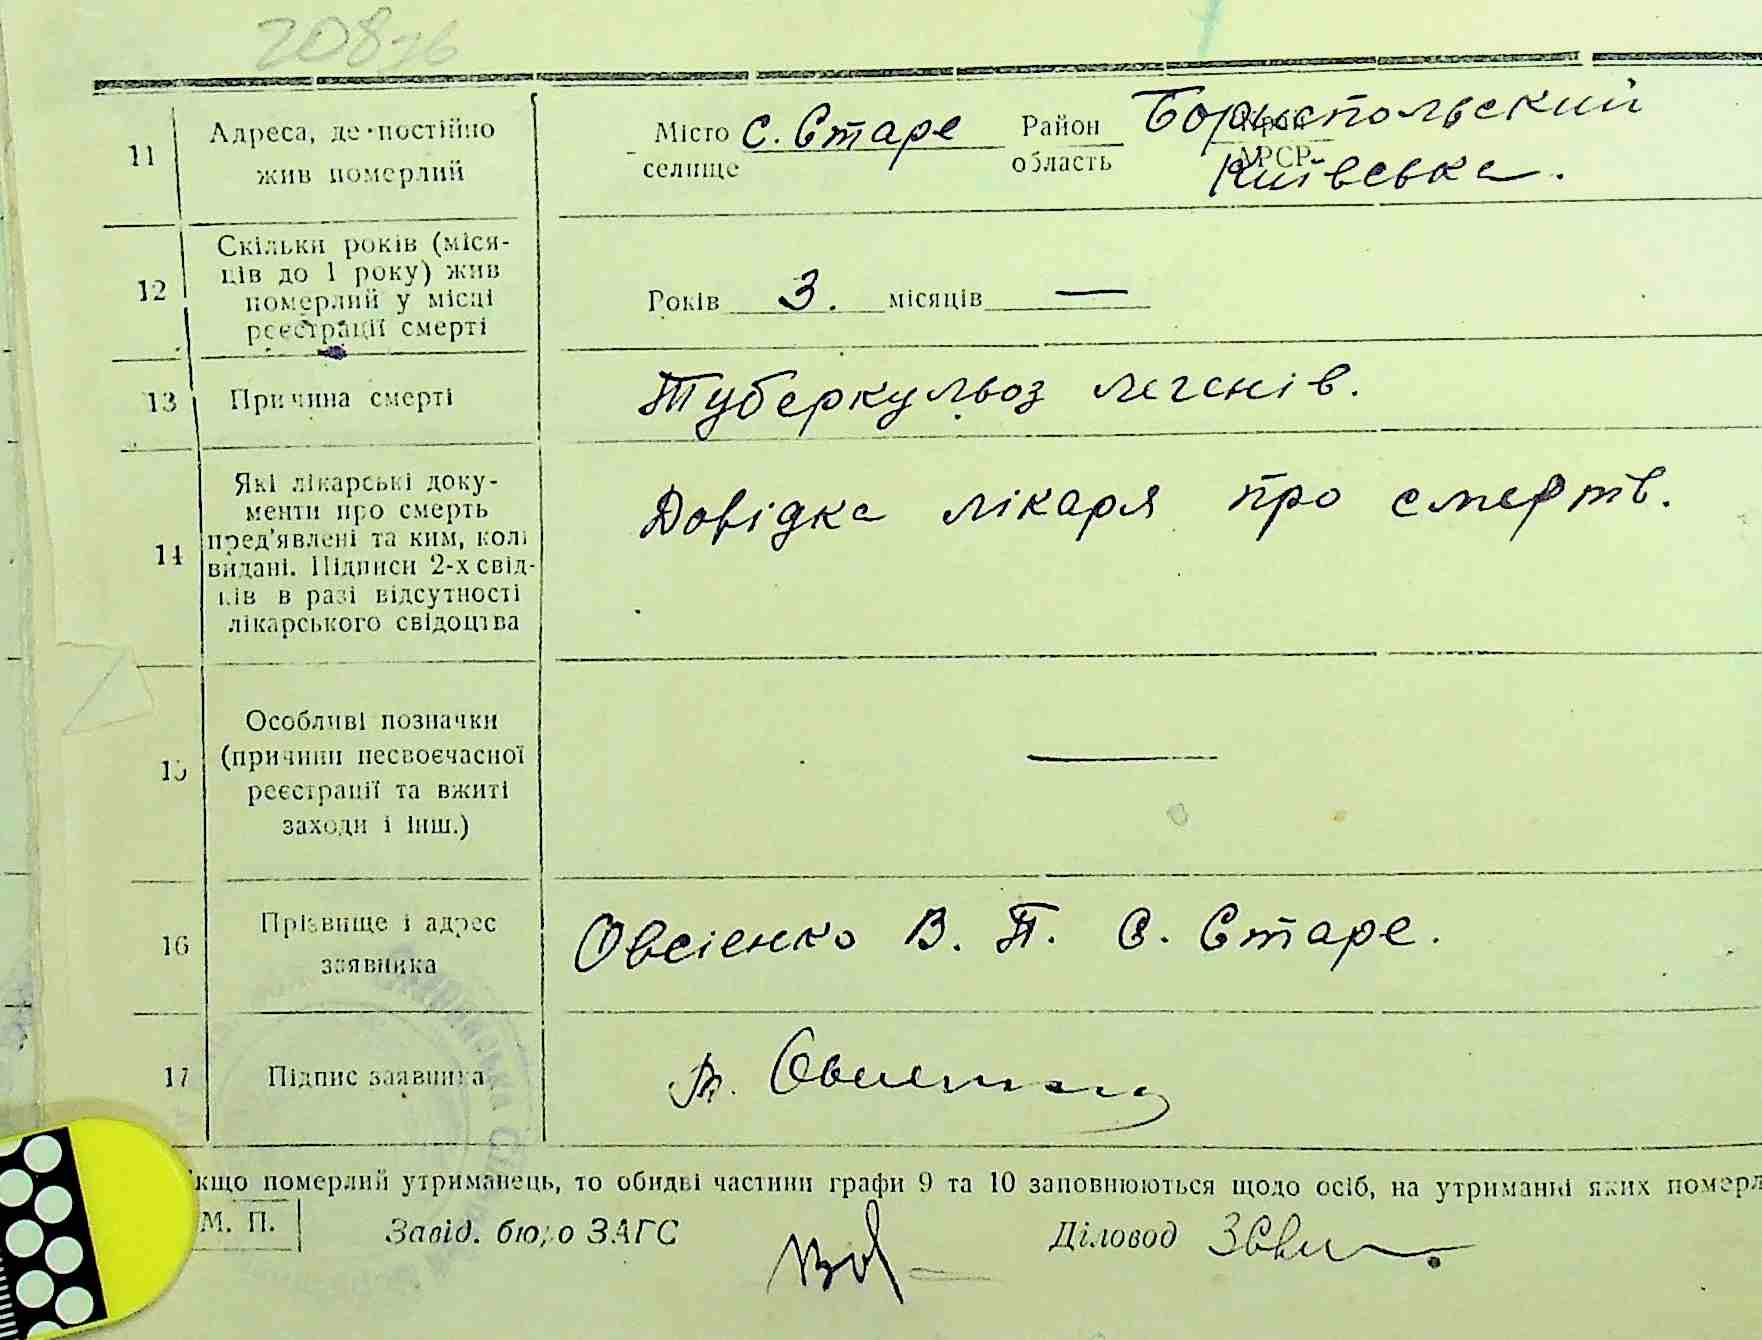 208зв
11
Адреса, де постійно
жив померлий
Місто с. Старе Район Борыспольский
селище область Київська.
12
Скільки років (міся-
ців до 1 року) жив
померлий у місці
реєстрації смерті
Років 3. місяців —
13
Причина смерті
Туберкульоз легенів.
14
Які лікарські доку-
менти про смерть
пред'явлені та ким, коли
видані. Підписи 2-х свід-
ків в разі відсутності
лікарського свідоцтва
Довідка лікаря про смерть.
15
Особливі позначки
(причини несвоєчасної
реєстрації та вжиті
заходи і інш.)
—
16
Прізвище і адрес
заявника
Овсієнко В. П. С. Старе.
17
Підпис заявника
кщо померлий утриманець, то обидві частини графи 9 та 10 заповнюються щодо осіб, на утриманні яких померл
М. П.
Завід. бюро ЗАГС
Діловод